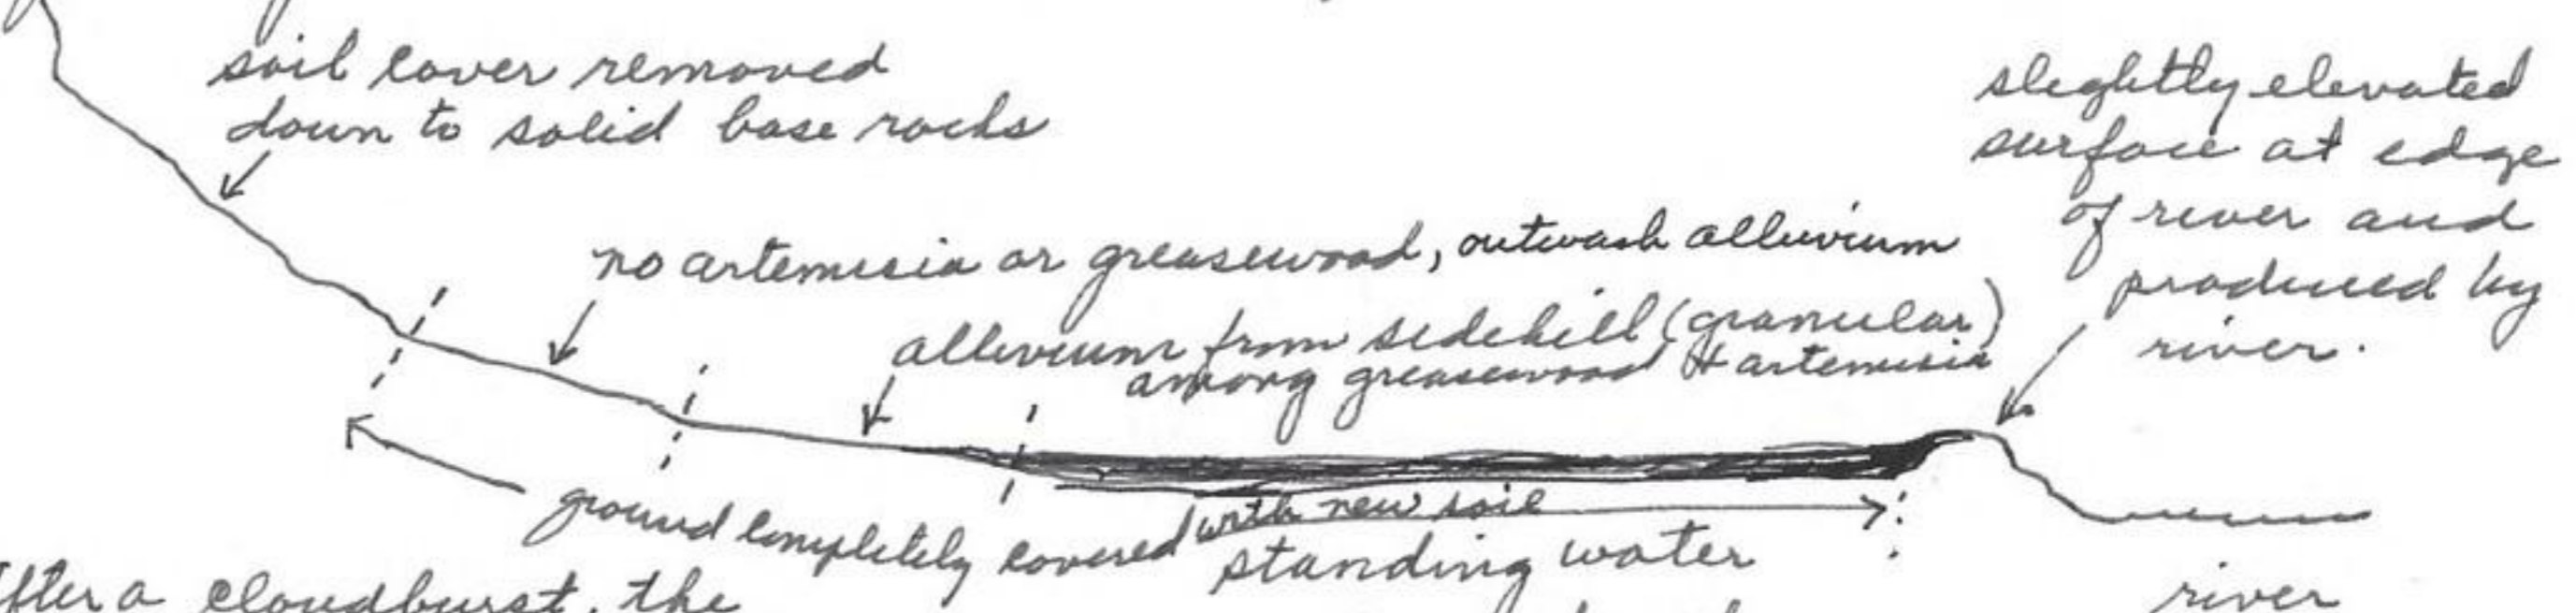 soil cover removed
down to solid base rocks
slightly elevated
surface at edge
of river and
produced by
river.
no artemisia or greasewood, outwash alluvium
alluvium from sidehill (granular)
among greasewood & artemisia
ground completely covered with new soil
standing water
river
after a cloudburst, the